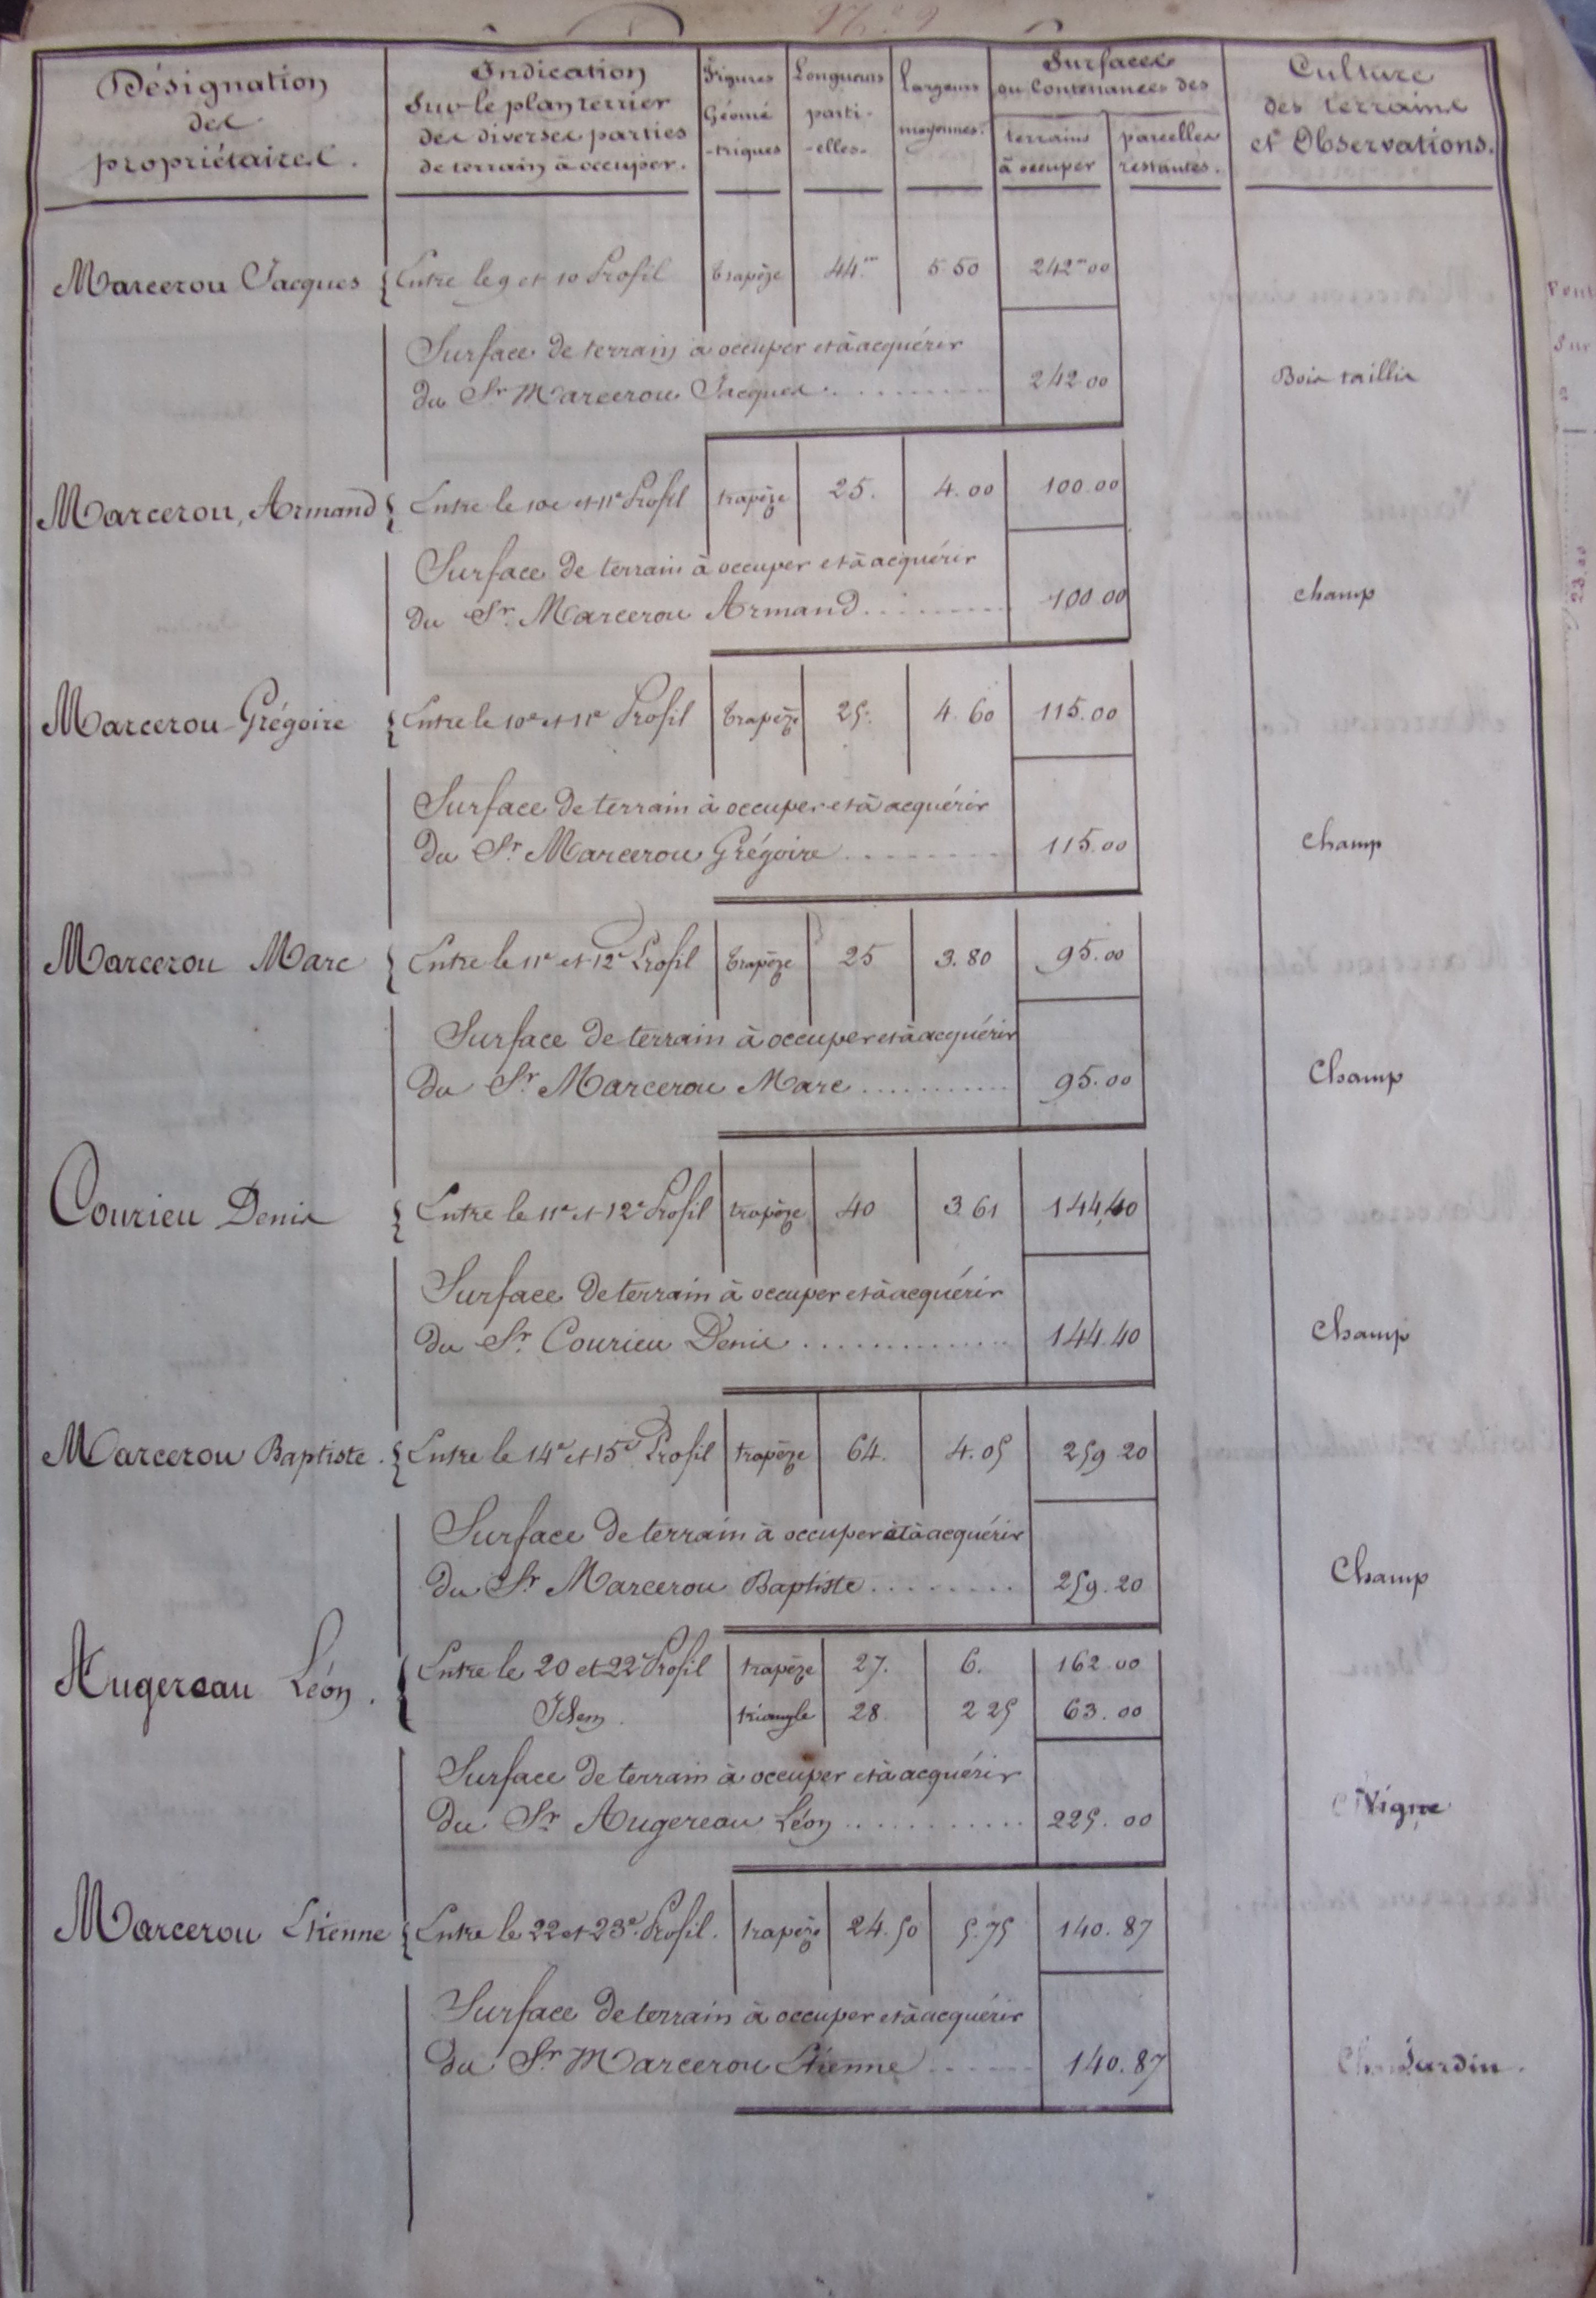 Désignation des propriétaires.
Indication sur le plan terrier des diverses parties de terrain à occuper.
Figures Géomé-triques
Longueurs parti-elles.
Largeurs moyennes.
Surfaces ou Contenances des
terrains à occuper
parcelles restantes.
Culture des terrains et Observations.
Marcerou Jacques { Entre le 9 et 10 Profil trapèze 44.m 5.50 242m00
Surface de terrain à occuper et à acquérir
du Sr Marcerou Jacques .......... 242.00 Bois taillis
Marcerou, Armand { Entre le 10e et 11e Profil trapèze 25. 4.00 100.00
Surface de terrain à occuper et à acquérir
du Sr. Marcerou Armand .......... 100.00 champ
Marcerou Grégoire { Entre le 10e et 11e Profil trapèze 25. 4.60 115.00
Surface de terrain à occuper et à acquérir
du Sr Marcerou Grégoire .......... 115.00 champ
Marcerou Marc { Entre le 11e et 12e Profil trapèze 25 3.80 95.00
Surface de terrain à occuper et à acquérir
du Sr Marcerou Marc .......... 95.00 Champ
Courieu Denis { Entre le 11e et 12e Profil trapèze 40 3.61 144,40
Surface de terrain à occuper et à acquérir
du Sr. Courieu Denis .......... 144.40 Champ
Marcerou Baptiste. { Entre le 14e et 15e Profil trapèze 64. 4.05 259 20
Surface de terrain à occuper et à acquérir
du Sr Marcerou Baptiste .......... 259.20 Champ
Augereau Léon. { Entre le 20 et 22e Profil trapèze 27. 6. 162.00
Idem. triangle 28. 2 25 63.00
Surface de terrain à occuper et à acquérir
du Sr. Augereau Léon .......... 225.00 Vigne
Marcerou Etienne { Entre le 22 et 23e Profil. trapèze 24.50 5.75 140.87
Surface de terrain à occuper et à acquérir
du Sr. Marcerou Etienne .......... 140.87 Jardin.